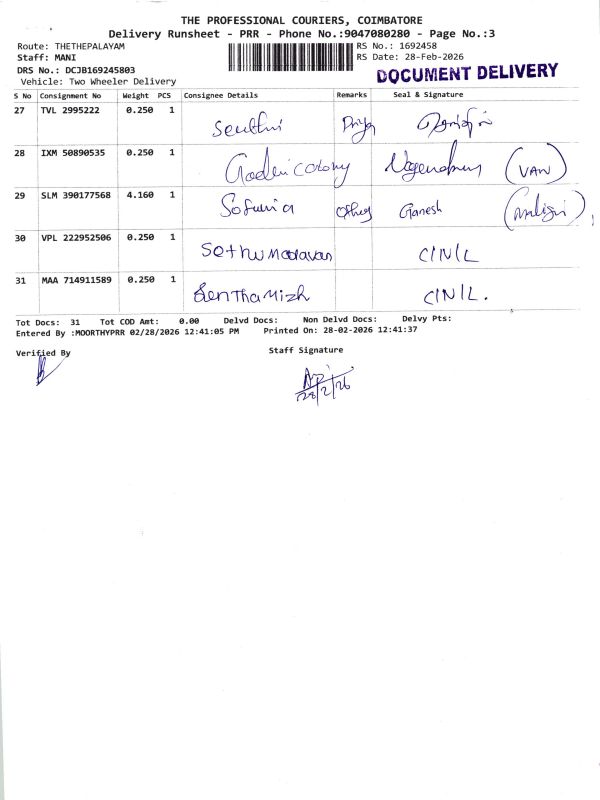 THE PROFESSIONAL COURIERS, COIMBATORE
Delivery Runsheet - PRR - Phone No.:9047080280 - Page No.:3
Route: THETHEPALAYAM RS No.: 1692458
Staff: MANI RS Date: 28-Feb-2026
DRS No.: DCJB169245803 DOCUMENT DELIVERY
Vehicle: Two Wheeler Delivery
S No Consignment No Weight PCS Consignee Details Remarks Seal & Signature
27 TVL 2995222 0.250 1 Senthil Priya
28 IXM 50890535 0.250 1 colony (VAN)
29 SLM 390177568 4.160 1 Ganesh
30 VPL 222952506 0.250 1 CINIL
31 MAA 714911589 0.250 1 SenThamizh CINIL.
Tot Docs: 31 Tot COD Amt: 0.00 Delvd Docs: Non Delvd Docs: Delvy Pts:
Entered By :MOORTHYPRR 02/28/2026 12:41:05 PM Printed On: 28-02-2026 12:41:37
Verified By Staff Signature
28/2/26